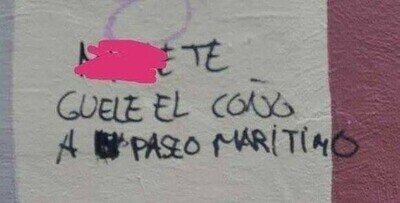 TE
GUELE EL COÑO
A PASEO MARÍTIMO